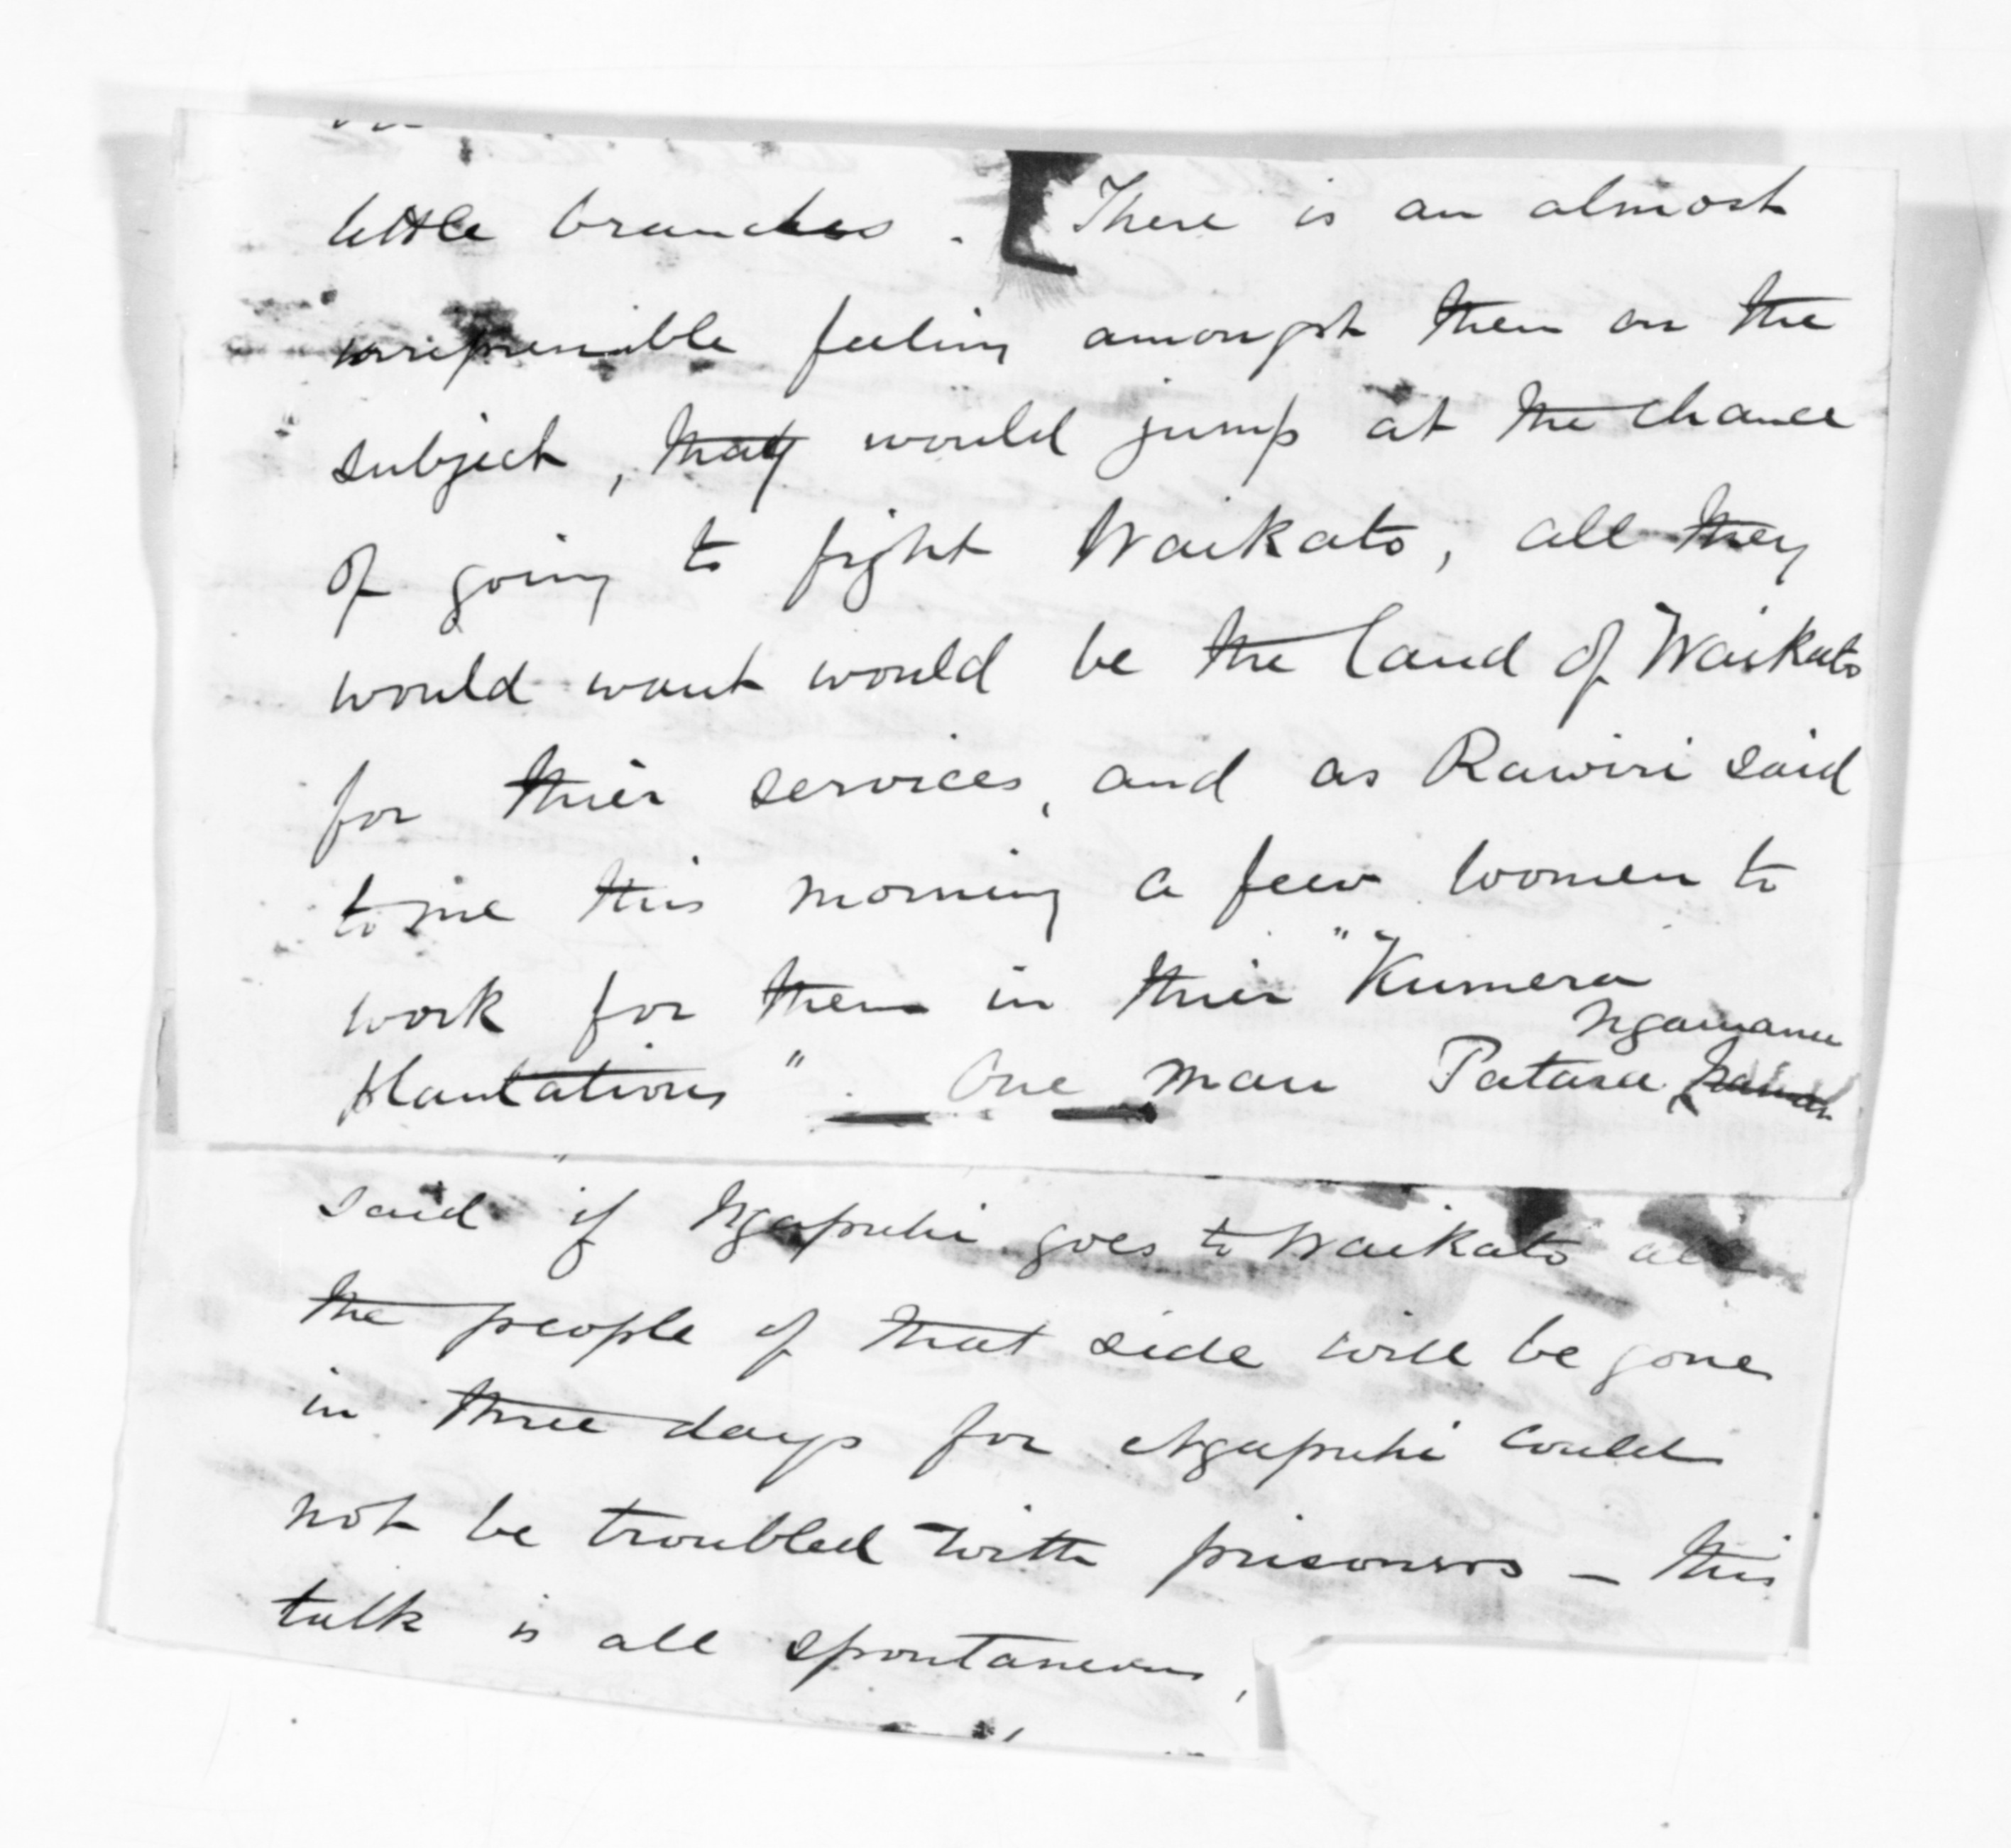 little branches . [ There is an almost
irrepressible feeling amongst them on the
subject, they would jump at the chance
of going to fight Waikato, all they
would want would be the land of Waikato
for thier services, and as Rawiri said
to me this morning a few women to
work for them in thier "Kumera
Ngamanu
plantations". One man Patara
said "if Ngapuhi goes to Waikato all
the people of that side will be gone
in three days for Ngapuhi could
not be troubled with prisoners – this
talk is all spontaneous,